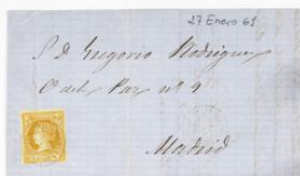 27 Enero 61
S. D. Gregorio Rodriguez
C del Paz nº 9
Madrid